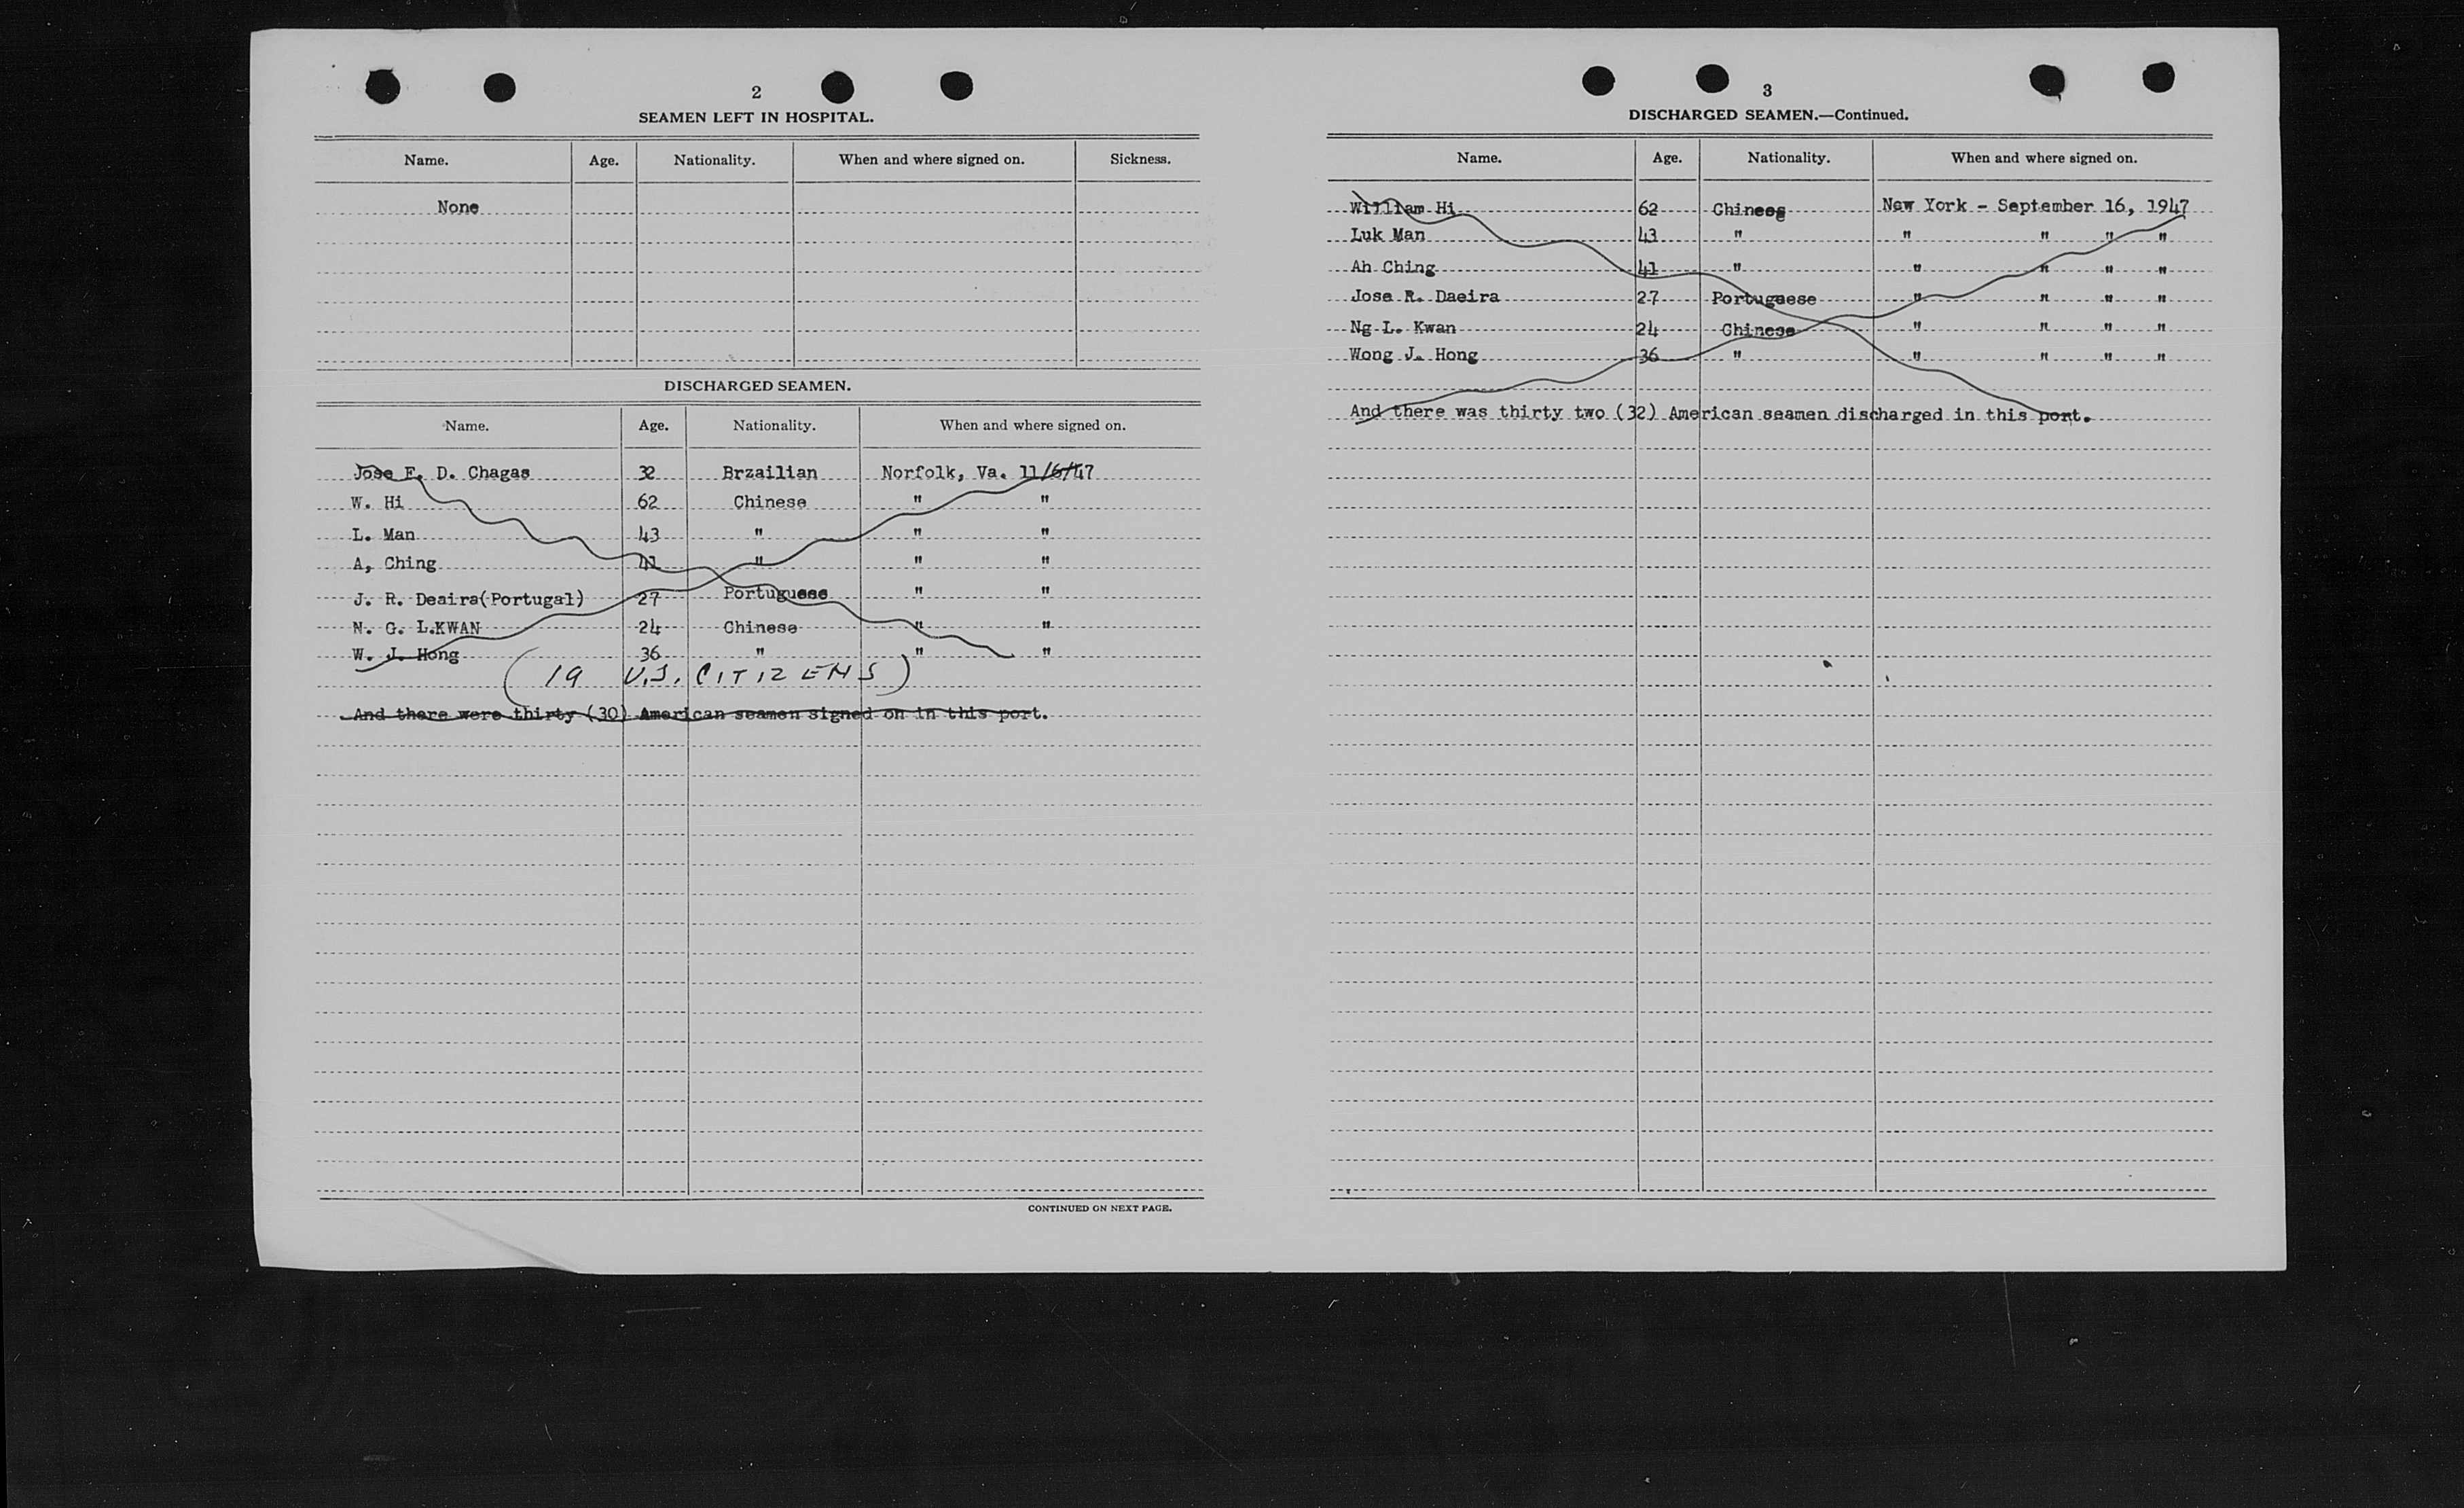 2
SEAMEN LEFT IN HOSPITAL.
Name. Age. Nationality. When and where signed on. Sickness.
None
DISCHARGED SEAMEN.
Name. Age. Nationality. When and where signed on.
Jose E. D. Chagas 32 Brzailian Norfolk, Va. 11/6/47
W. Hi 62 Chinese " "
L. Man 43 " " "
A, Ching 41 " " "
J. R. Deaira(Portugal) 27 Portuguese " "
N. G. L.KWAN 24 Chinese " "
W. J. Hong 36 " " "
(19 U.S. CITIZENS)
And there were thirty (30) American seamen signed on in this port.
CONTINUED ON NEXT PAGE.
3
DISCHARGED SEAMEN.—Continued.
Name. Age. Nationality. When and where signed on.
William Hi 62 Chinese New York - September 16, 1947
Luk Man 43 " " " " "
Ah Ching 41 " " " " "
Jose R. Daeira 27 Portuguese " " " "
Ng L. Kwan 24 Chinese " " " "
Wong J. Hong 36 " " " " "
And there was thirty two (32) American seamen discharged in this port.